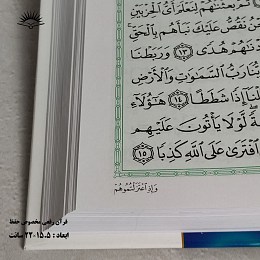 ثُمَّ بَعَثْنَٰهُمْ لِنَعْلَمَ أَىُّ ٱلْحِزْبَيْنِ
نَحْنُ نَقُصُّ عَلَيْكَ نَبَأَهُم بِٱلْحَقِّ ۚ
وَزِدْنَٰهُمْ هُدًى ۝١٣ وَرَبَطْنَا
رَبُّنَا رَبُّ ٱلسَّمَٰوَٰتِ وَٱلْأَرْضِ
قُلْنَآ إِذًا شَطَطًا ۝١٤ هَٰٓؤُلَآءِ
لَّوْلَا يَأْتُونَ عَلَيْهِم
ٱفْتَرَىٰ عَلَى ٱللَّهِ كَذِبًا ۝١٥
وَإِذِ ٱعْتَزَلْتُمُوهُمْ
قرآن رقعی مخصوص حفظ
ابعاد : ۱۵.۵-۲۲ سانت